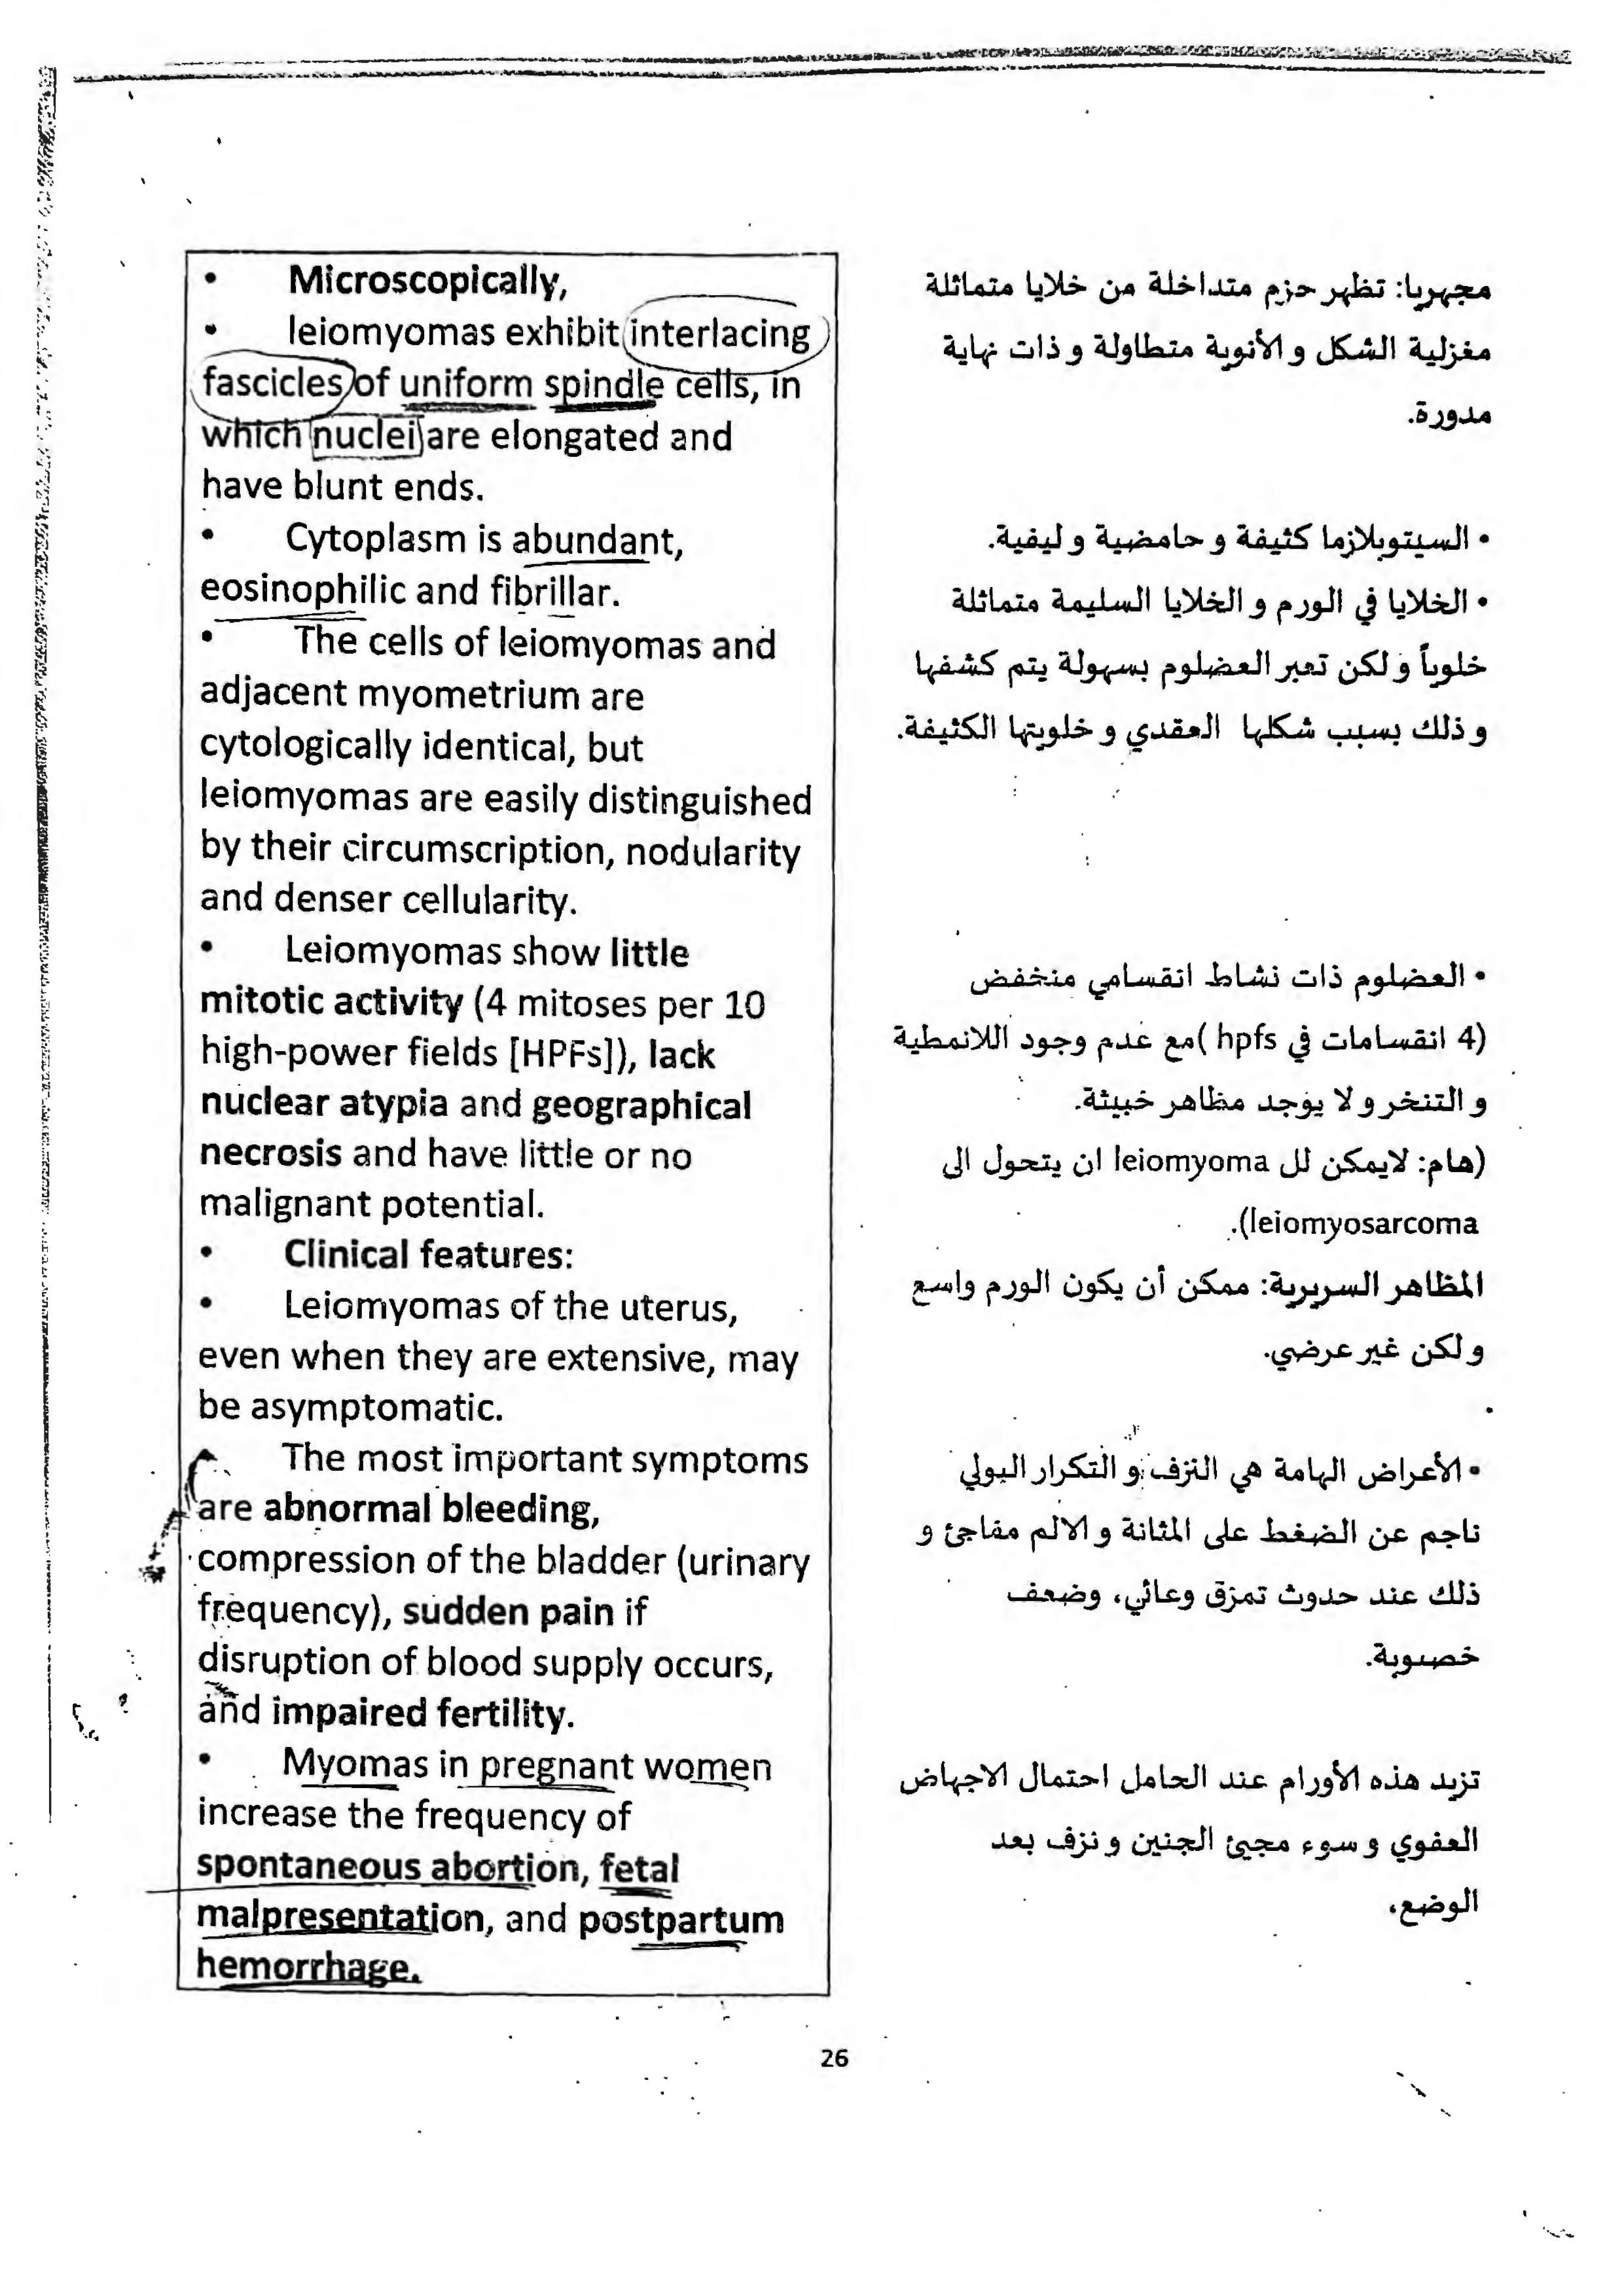 • Microscopically,
• leiomyomas exhibit interlacing
fascicles of uniform spindle cells, in
which nuclei are elongated and
have blunt ends.
• Cytoplasm is abundant,
eosinophilic and fibrillar.
• The cells of leiomyomas and
adjacent myometrium are
cytologically identical, but
leiomyomas are easily distinguished
by their circumscription, nodularity
and denser cellularity.
• Leiomyomas show little
mitotic activity (4 mitoses per 10
high-power fields [HPFs]), lack
nuclear atypia and geographical
necrosis and have little or no
malignant potential.
• Clinical features:
• Leiomyomas of the uterus,
even when they are extensive, may
be asymptomatic.
The most important symptoms
are abnormal bleeding,
compression of the bladder (urinary
frequency), sudden pain if
disruption of blood supply occurs,
and impaired fertility.
• Myomas in pregnant women
increase the frequency of
spontaneous abortion, fetal
malpresentation, and postpartum
hemorrhage.
مجهريا: تظهر حزم متداخلة من خلايا متماثلة
مغزلية الشكل و الأنوية متطاولة و ذات نهاية
مدورة.
• السيتوبلازما كثيفة و حامضية و ليفية.
• الخلايا في الورم و الخلايا السليمة متماثلة
خلوياً و لكن تعبر العضلوم بسهولة يتم كشفها
و ذلك بسبب شكلها العقدي و خلويتها الكثيفة.
• العضلوم ذات نشاط انقسامي منخفض
(4 انقسامات في hpfs )مع عدم وجود اللانمطية
و التنخر و لا يوجد مظاهر خبيثة.
(هام: لايمكن لل leiomyoma ان يتحول الى
leiomyosarcoma).
المظاهر السريرية: ممكن أن يكون الورم واسع
و لكن غير عرضي.
•
• الأعراض الهامة هي النزف و التكرار البولي
ناجم عن الضغط على المثانة و الالم مفاجئ و
ذلك عند حدوث تمزق وعائي، وضعف
خصوبة.
تزيد هذه الأورام عند الحامل احتمال الاجهاض
العفوي و سوء مجيئ الجنين و نزف بعد
الوضع.
26